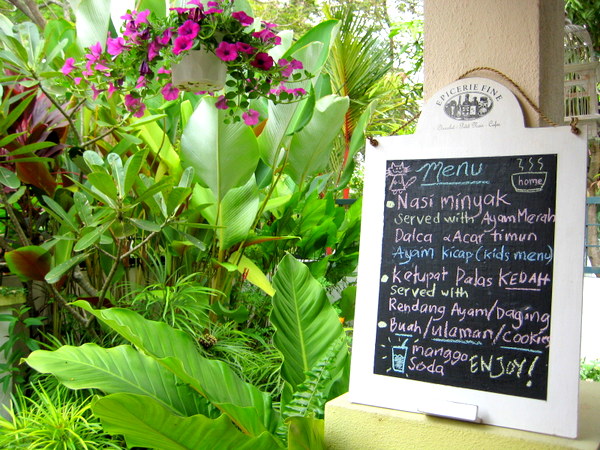 EPICERIE FINE
Menu
home
Nasi minyak
served with Ayam Merah
Dalca & Acar timun
Ayam kicap (kids menu)
Ketupat Palas KEDAH
served with
Rendang Ayam/Daging
Buah/ulaman/cookies
manggo
Soda
ENJOY!